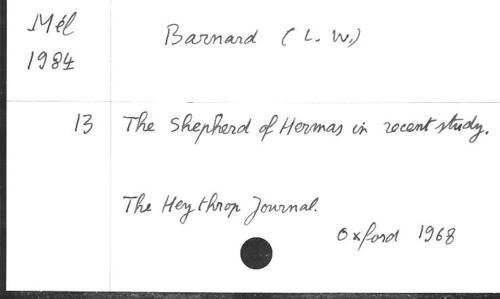 Mél
1984
Barnard (L. W.)
13
The Shepherd of Hermas in recent study.
The Heythrop Journal.
Oxford 1968